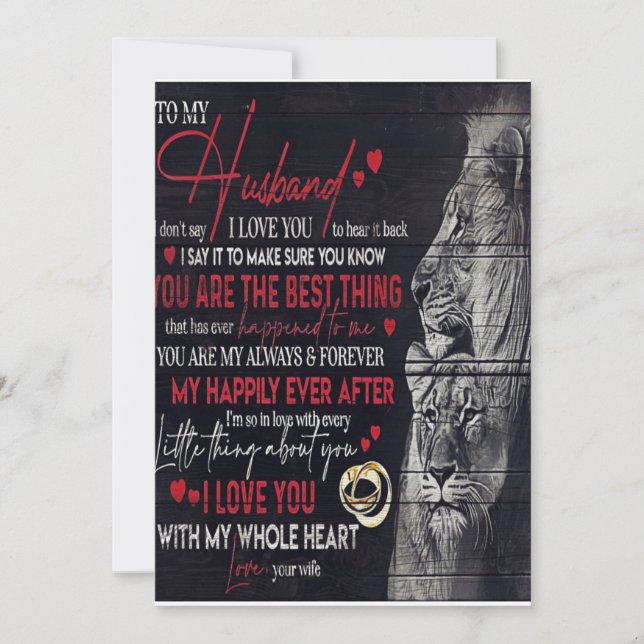 TO MY
Husband
I don't say I LOVE YOU to hear it back
I SAY IT TO MAKE SURE YOU KNOW
YOU ARE THE BEST THING
that has ever happened to me
YOU ARE MY ALWAYS & FOREVER
MY HAPPILY EVER AFTER
I'm so in love with every
Little thing about you
I LOVE YOU
WITH MY WHOLE HEART
Love, your wife